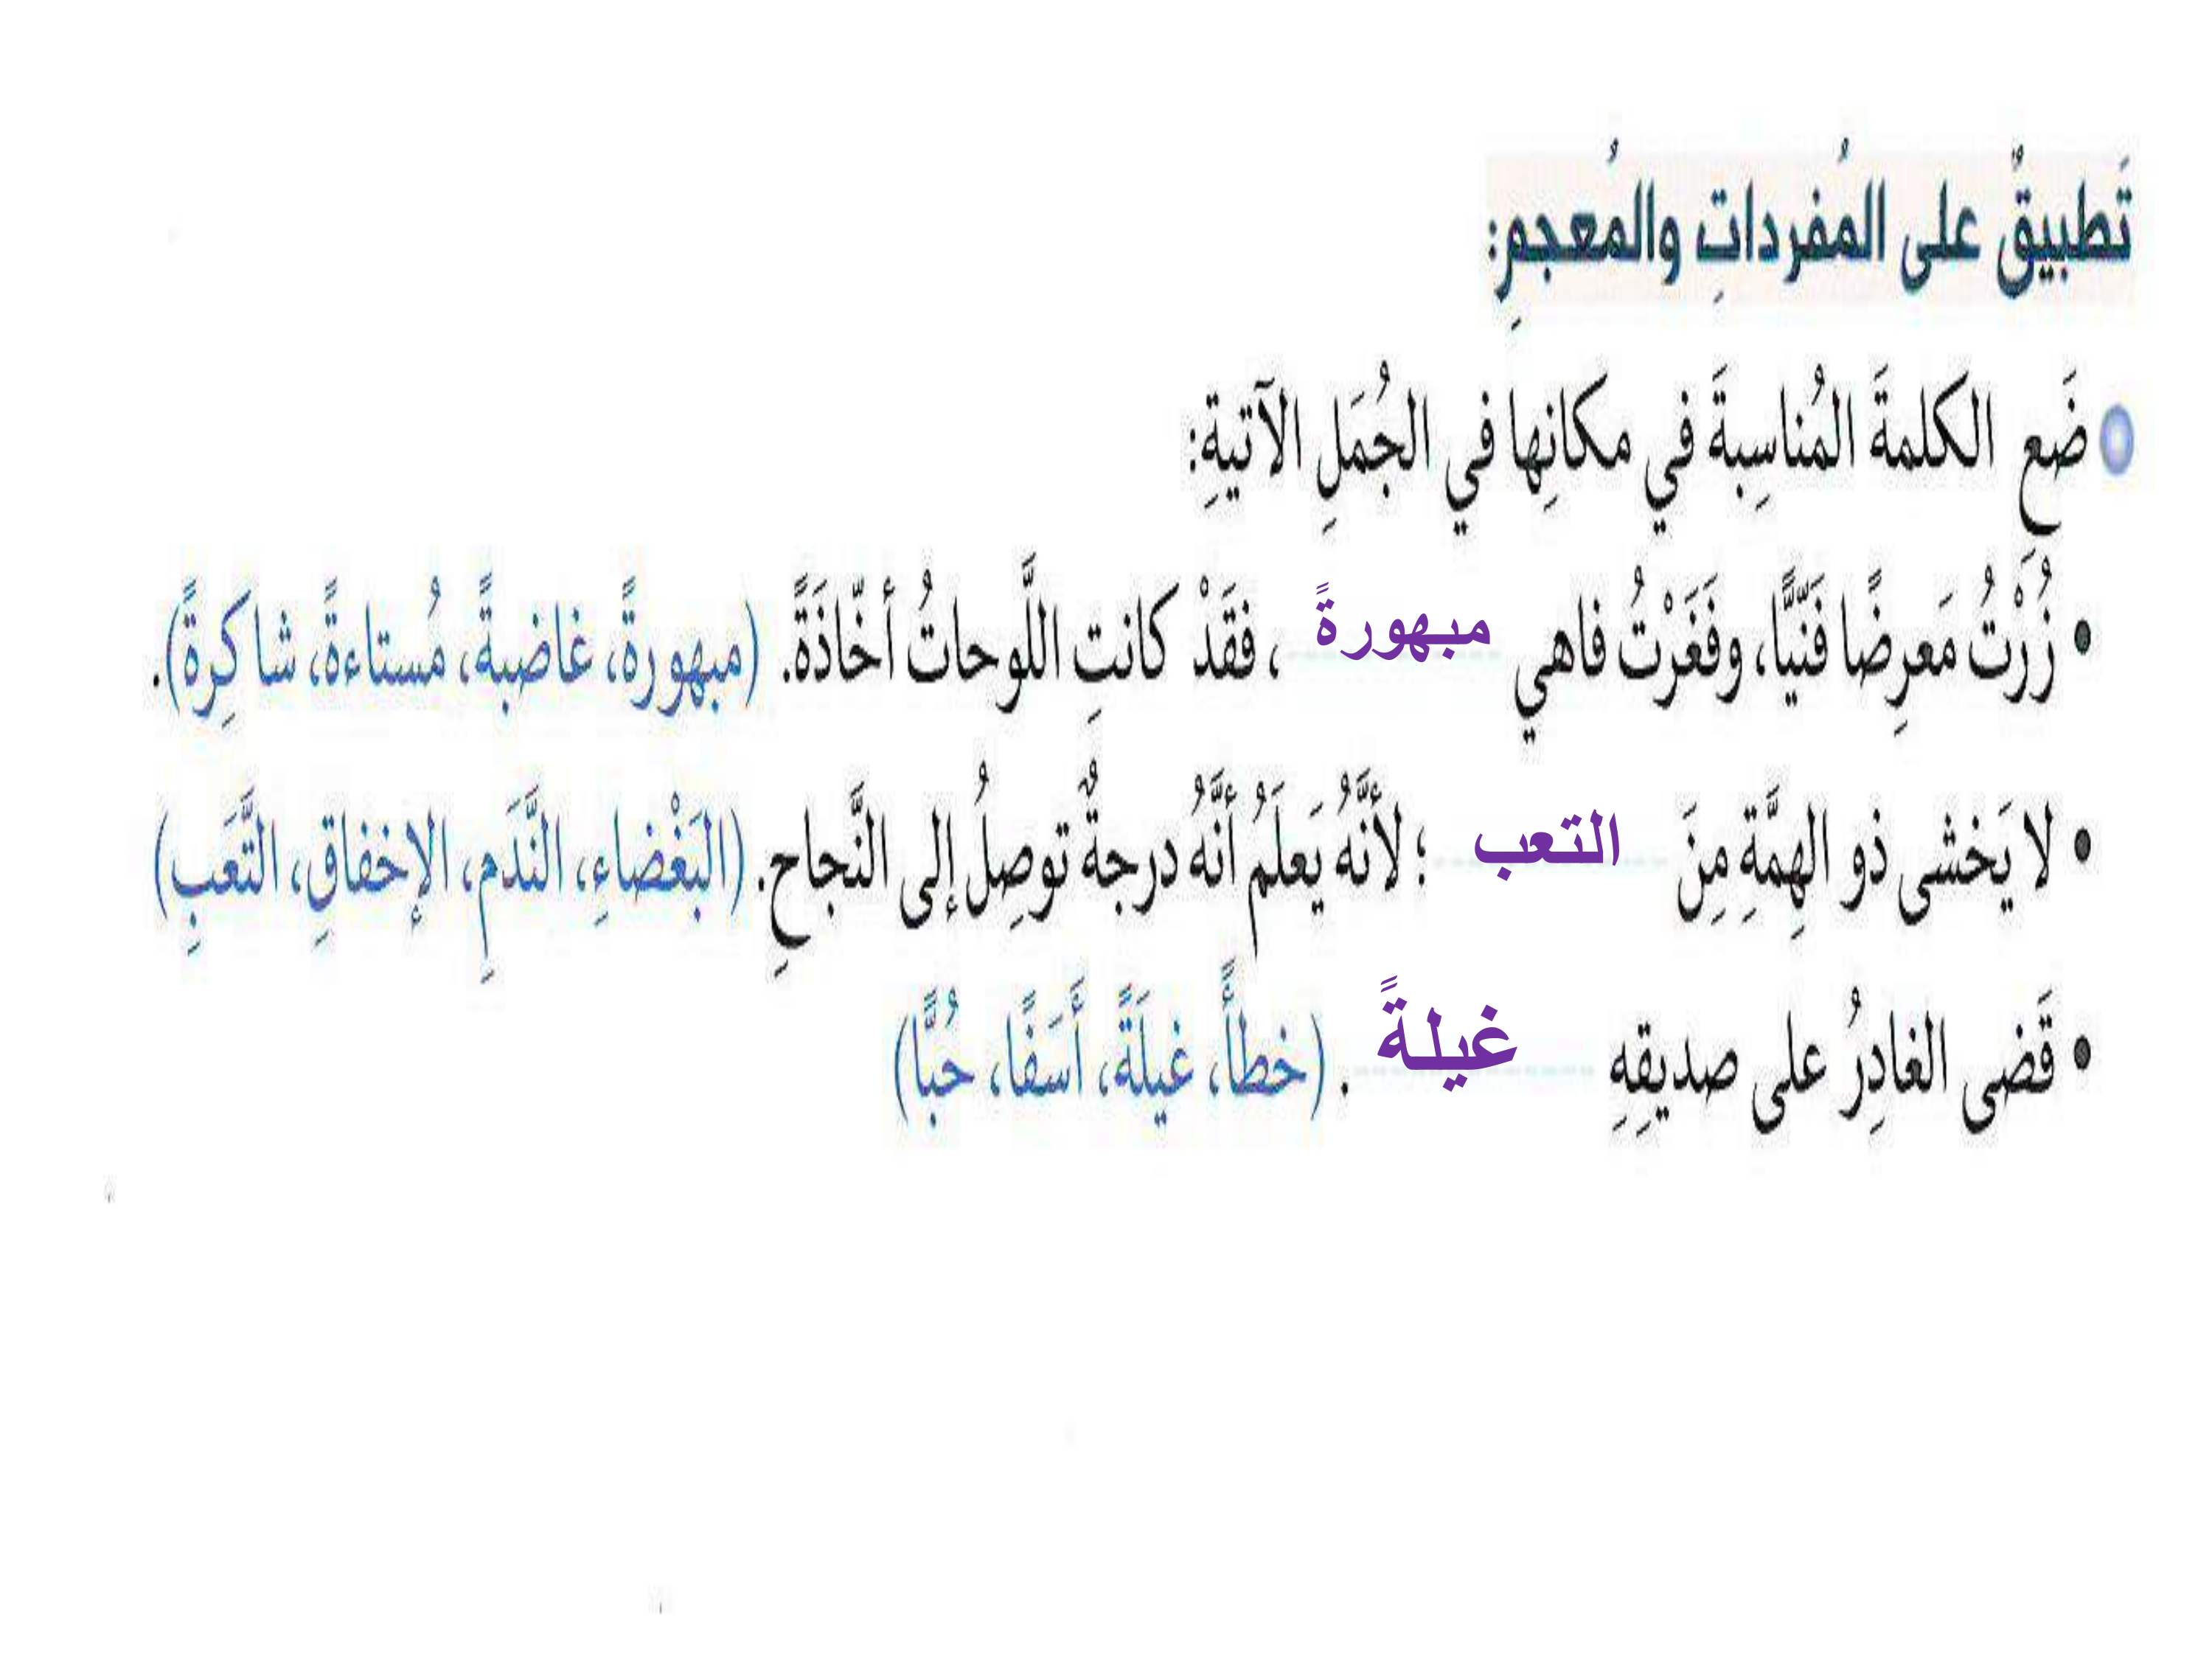 تَطبيقٌ على المُفرداتِ والمُعجمِ:
ضَع الكلمةَ المُناسِبةَ في مكانِها في الجُمَلِ الآتيةِ:
• زُرْتُ مَعرِضًا فَنّيًّا، وفَغَرْتُ فاهي مبهورةً ، فقَدْ كانتِ اللَّوحاتُ أخّاذَةً. (مبهورةً، غاضبةً، مُستاءةً، شاكِرةً).
• لا يَخشى ذو الهِمَّةِ مِنَ التعب ؛ لأنَّهُ يَعلَمُ أنَّهُ درجةٌ توصِلُ إلى النَّجاحِ. (البَغْضاءِ، النَّدَمِ، الإخفاقِ، التَّعَبِ)
• قَضى الغادِرُ على صديقِهِ غيلةً . (خطأً، غيلَةً، أَسَفًا، حُبًّا)